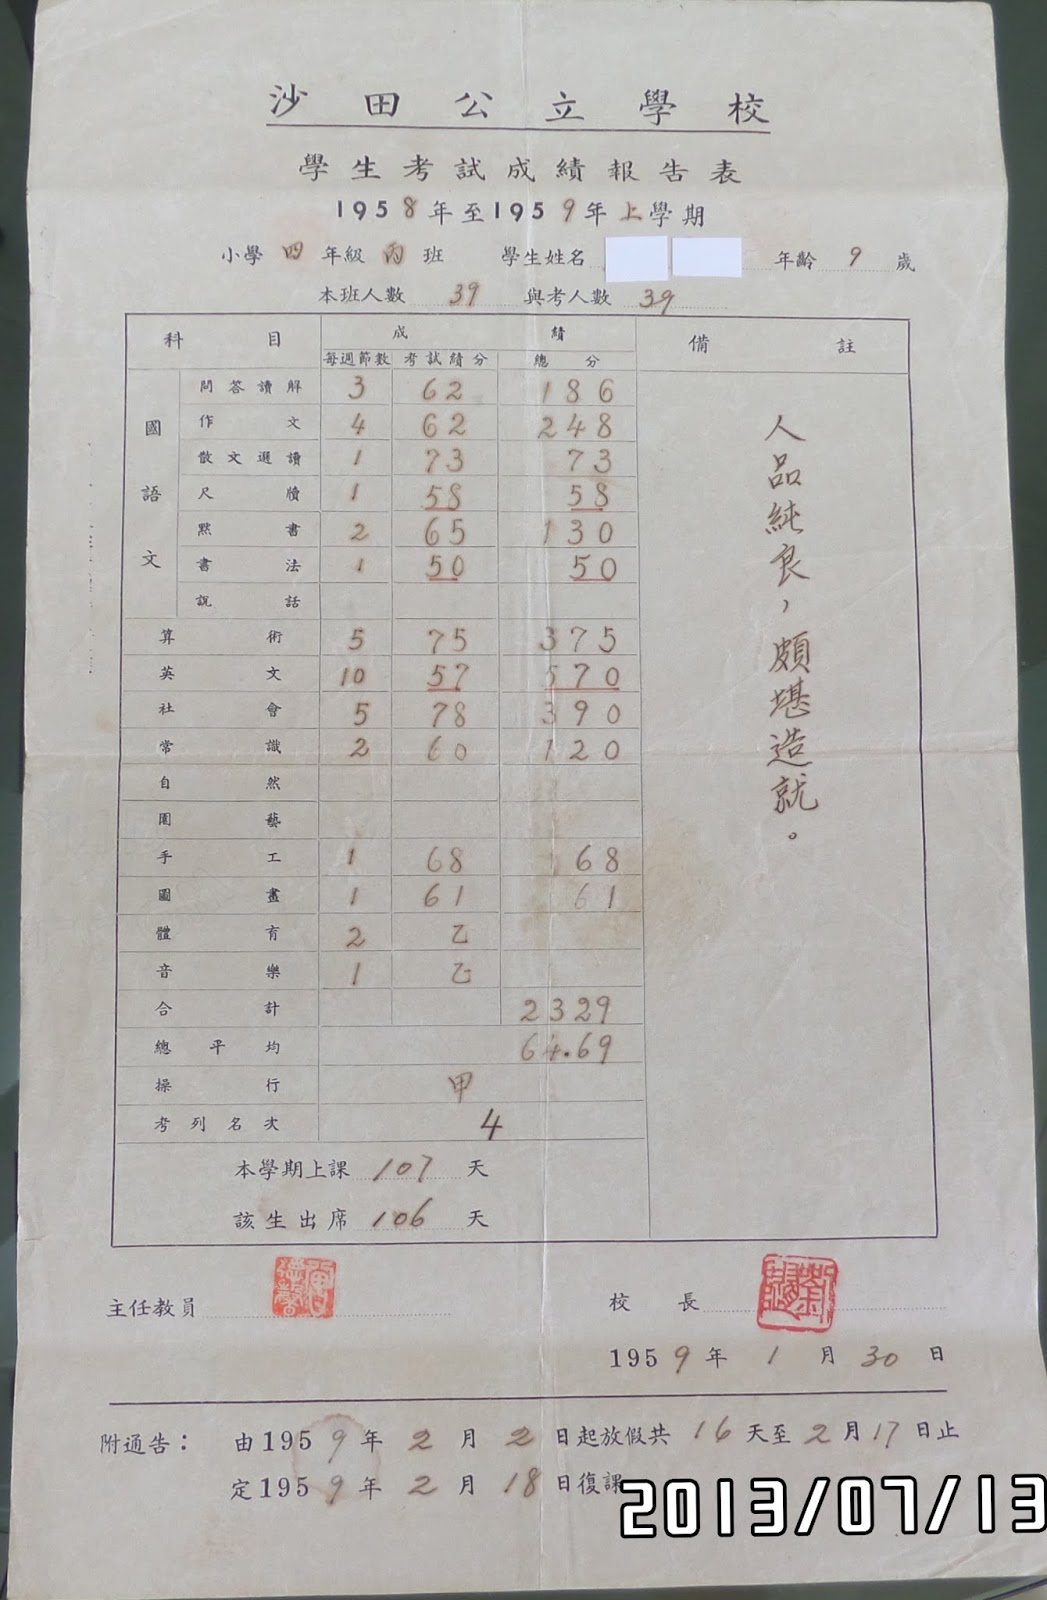 沙田公立學校
學生考試成績報告表
1958年至1959年上學期
小學四年級丙班 學生姓名 年齡9歲
本班人數39 與考人數39
科目 成績 備註
每週節數 考試績分 總分
國語文
問答讀解 3 62 186
作文 4 62 248
散文選讀 1 73 73
尺牘 1 58 58
默書 2 65 130
書法 1 50 50
說話
算術 5 75 375
英文 10 57 570
社會 5 78 390
常識 2 60 120
自然
園藝
手工 1 68 68
圖畫 1 61 61
體育 2 乙
音樂 1 乙
合計 2329
總平均 64.69
操行 甲
考列名次 4
人品純良，頗堪造就。
本學期上課107天
該生出席106天
主任教員 校長
1959年1月30日
附通告：由1959年2月2日起放假共16天至2月17日止
定1959年2月18日復課
2013/07/13